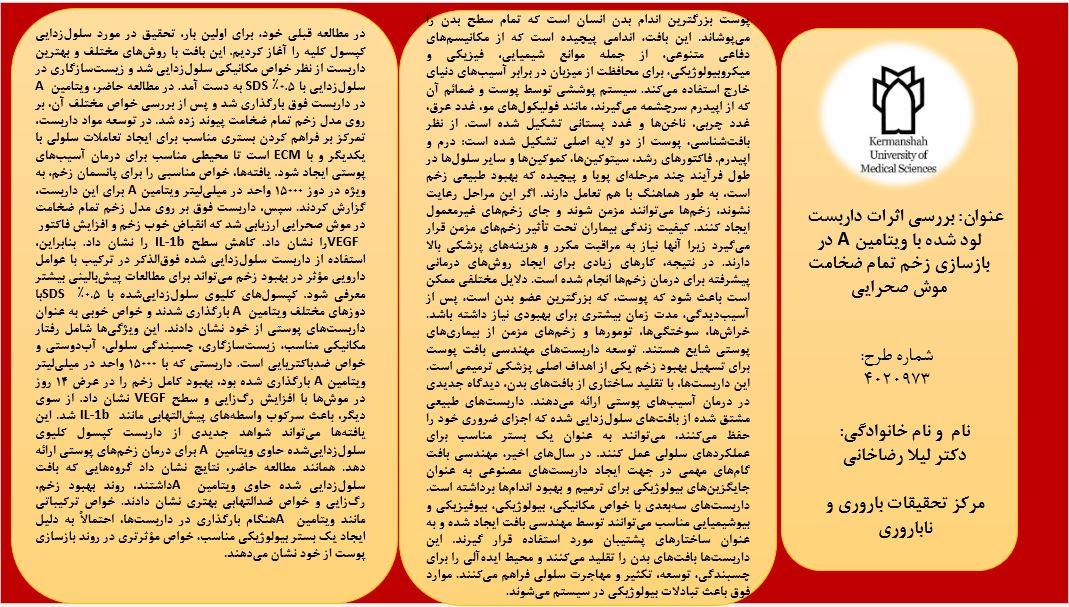 Kermanshah
University of
Medical Sciences
عنوان: بررسی اثرات داربست
لود شده با ویتامین A در
بازسازی زخم تمام ضخامت
موش صحرایی
شماره طرح:
۴۰۲۰۹۷۳
نام و نام خانوادگی:
دکتر لیلا رضاخانی
مرکز تحقیقات باروری و
ناباروری
پوست بزرگترین اندام بدن انسان است که تمام سطح بدن را
می‌پوشاند. این بافت، اندامی پیچیده است که از مکانیسم‌های
دفاعی متنوعی، از جمله موانع شیمیایی، فیزیکی و
میکروبیولوژیکی، برای محافظت از میزبان در برابر آسیب‌های دنیای
خارج استفاده می‌کند. سیستم پوششی توسط پوست و ضمائم آن
که از اپیدرم سرچشمه می‌گیرند، مانند فولیکول‌های مو، غدد عرق،
غدد چربی، ناخن‌ها و غدد پستانی تشکیل شده است. از نظر
بافت‌شناسی، پوست از دو لایه اصلی تشکیل شده است: درم و
اپیدرم. فاکتورهای رشد، سیتوکین‌ها، کموکین‌ها و سایر سلول‌ها در
طول فرآیند چند مرحله‌ای پویا و پیچیده که بهبود طبیعی زخم
است، به طور هماهنگ با هم تعامل دارند. اگر این مراحل رعایت
نشوند، زخم‌ها می‌توانند مزمن شوند و جای زخم‌های غیرمعمول
ایجاد کنند. کیفیت زندگی بیماران تحت تأثیر زخم‌های مزمن قرار
می‌گیرد زیرا آنها نیاز به مراقبت مکرر و هزینه‌های پزشکی بالا
دارند. در نتیجه، کارهای زیادی برای ایجاد روش‌های درمانی
پیشرفته برای درمان زخم‌ها انجام شده است. دلایل مختلفی ممکن
است باعث شود که پوست، که بزرگترین عضو بدن است، پس از
آسیب‌دیدگی، مدت زمان بیشتری برای بهبودی نیاز داشته باشد.
خراش‌ها، سوختگی‌ها، تومورها و زخم‌های مزمن از بیماری‌های
پوستی شایع هستند. توسعه داربست‌های مهندسی بافت پوست
برای تسهیل بهبود زخم یکی از اهداف اصلی پزشکی ترمیمی است.
این داربست‌ها، با تقلید ساختاری از بافت‌های بدن، دیدگاه جدیدی
در درمان آسیب‌های پوستی ارائه می‌دهند. داربست‌های طبیعی
مشتق شده از بافت‌های سلول‌زدایی شده که اجزای ضروری خود را
حفظ می‌کنند، می‌توانند به عنوان یک بستر مناسب برای
عملکردهای سلولی عمل کنند. در سال‌های اخیر، مهندسی بافت
گام‌های مهمی در جهت ایجاد داربست‌های مصنوعی به عنوان
جایگزین‌های بیولوژیکی برای ترمیم و بهبود اندام‌ها برداشته است.
داربست‌های سه‌بعدی با خواص مکانیکی، بیولوژیکی، بیوفیزیکی و
بیوشیمیایی مناسب می‌توانند توسط مهندسی بافت ایجاد شده و به
عنوان ساختارهای پشتیبان مورد استفاده قرار گیرند. این
داربست‌ها بافت‌های بدن را تقلید می‌کنند و محیط ایده‌آلی را برای
چسبندگی، توسعه، تکثیر و مهاجرت سلولی فراهم می‌کنند. موارد
فوق باعث تبادلات بیولوژیکی در سیستم می‌شوند.
در مطالعه قبلی خود، برای اولین بار، تحقیق در مورد سلول‌زدایی
کپسول کلیه را آغاز کردیم. این بافت با روش‌های مختلف و بهترین
داربست از نظر خواص مکانیکی سلول‌زدایی شد و زیست‌سازگاری در
سلول‌زدایی با ۰.۵٪ SDS به دست آمد. در مطالعه حاضر، ویتامین A
در داربست فوق بارگذاری شد و پس از بررسی خواص مختلف آن، بر
روی مدل زخم تمام ضخامت پیوند زده شد. در توسعه مواد داربست،
تمرکز بر فراهم کردن بستری مناسب برای ایجاد تعاملات سلولی با
یکدیگر و با ECM است تا محیطی مناسب برای درمان آسیب‌های
پوستی ایجاد شود. یافته‌ها، خواص مناسبی را برای پانسمان زخم، به
ویژه در دوز ۱۵۰۰۰ واحد در میلی‌لیتر ویتامین A برای این داربست،
گزارش کردند. سپس، داربست فوق بر روی مدل زخم تمام ضخامت
در موش صحرایی ارزیابی شد که انقباض خوب زخم و افزایش فاکتور
VEGF را نشان داد. کاهش سطح IL-1b را نشان داد. بنابراین،
استفاده از داربست سلول‌زدایی شده فوق‌الذکر در ترکیب با عوامل
دارویی مؤثر در بهبود زخم می‌تواند برای مطالعات پیش‌بالینی بیشتر
معرفی شود. کپسول‌های کلیوی سلول‌زدایی‌شده با ۰.۵٪ SDS با
دوزهای مختلف ویتامین A بارگذاری شدند و خواص خوبی به عنوان
داربست‌های پوستی از خود نشان دادند. این ویژگی‌ها شامل رفتار
مکانیکی مناسب، زیست‌سازگاری، چسبندگی سلولی، آب‌دوستی و
خواص ضدباکتریایی است. داربستی که با ۱۵۰۰۰ واحد در میلی‌لیتر
ویتامین A بارگذاری شده بود، بهبود کامل زخم را در عرض ۱۴ روز
در موش‌ها با افزایش رگ‌زایی و سطح VEGF نشان داد. از سوی
دیگر، باعث سرکوب واسطه‌های پیش‌التهابی مانند IL-1b شد. این
یافته‌ها می‌تواند شواهد جدیدی از داربست کپسول کلیوی
سلول‌زدایی‌شده حاوی ویتامین A برای درمان زخم‌های پوستی ارائه
دهد. همانند مطالعه حاضر، نتایج نشان داد گروه‌هایی که بافت
سلول‌زدایی شده حاوی ویتامین A داشتند، روند بهبود زخم،
رگ‌زایی و خواص ضدالتهابی بهتری نشان دادند. خواص ترکیباتی
مانند ویتامین A هنگام بارگذاری در داربست‌ها، احتمالاً به دلیل
ایجاد یک بستر بیولوژیکی مناسب، خواص مؤثرتری در روند بازسازی
پوست از خود نشان می‌دهند.